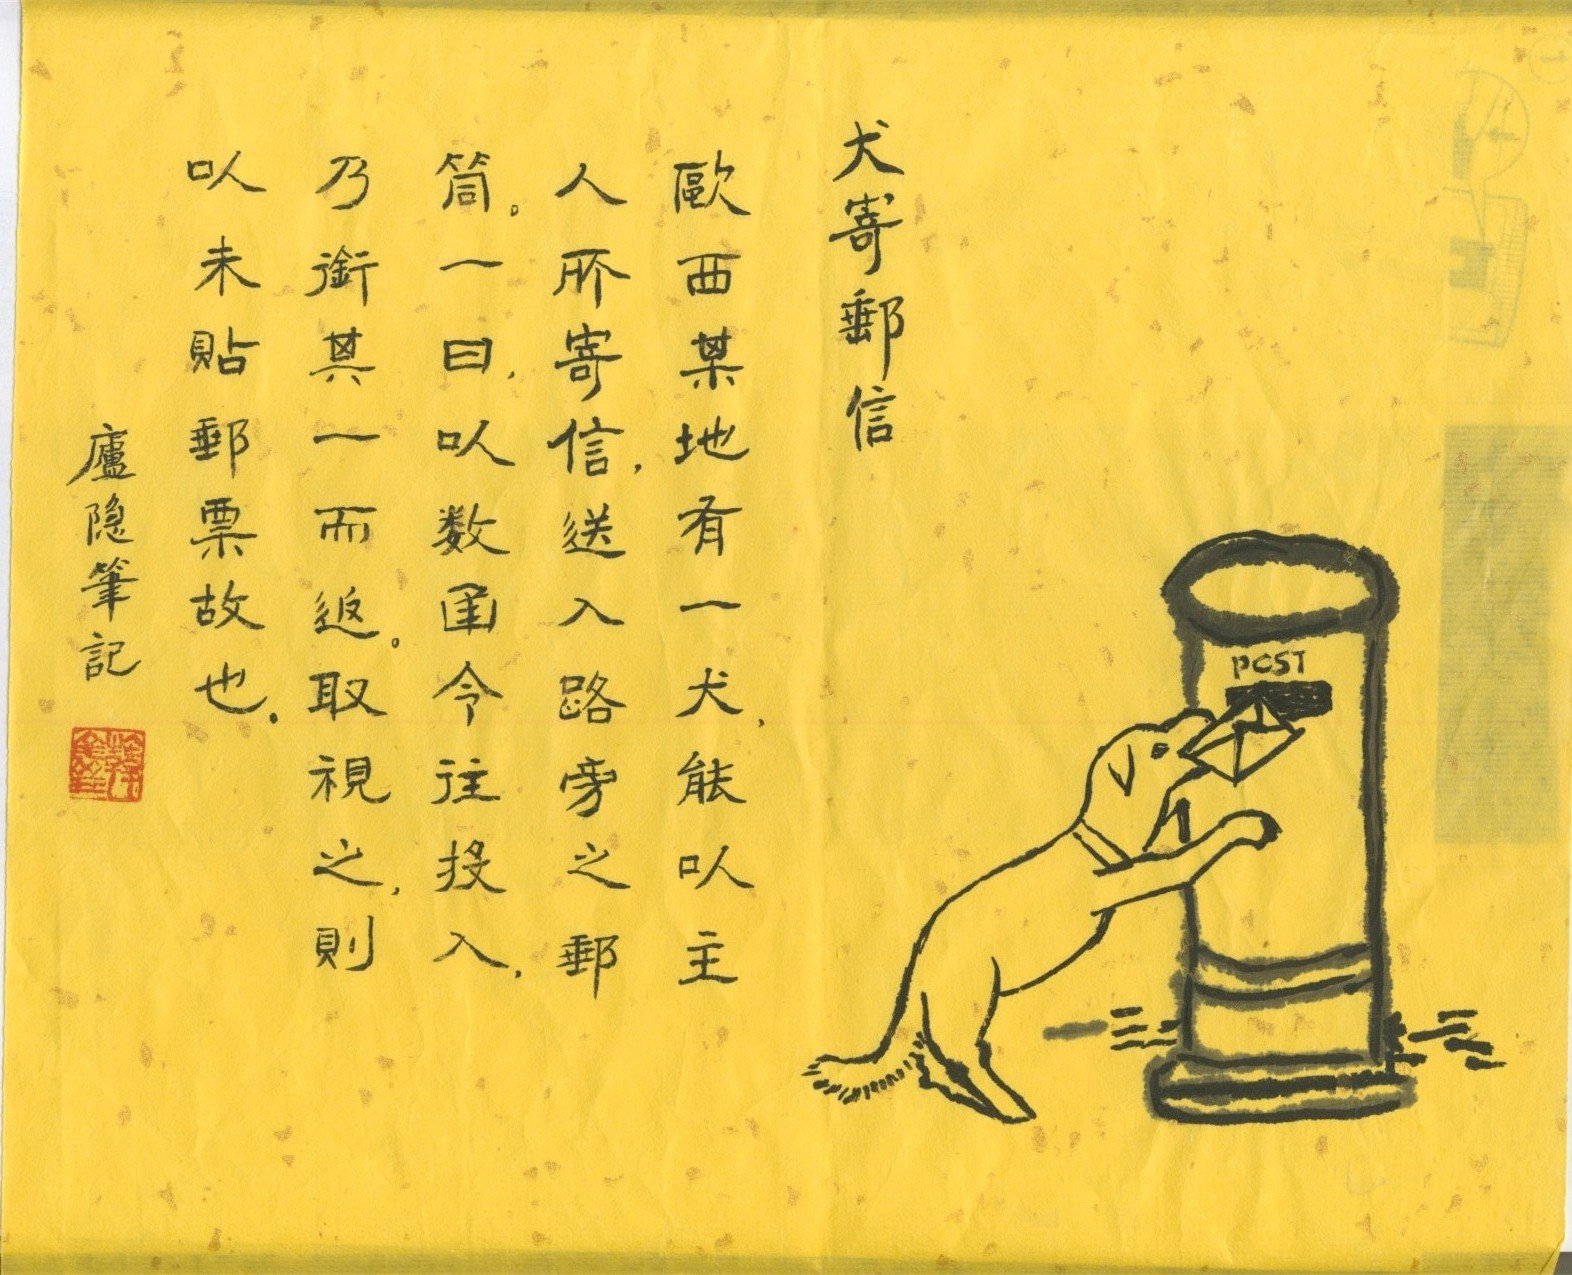 犬寄郵信
歐西某地有一犬,能以主
人所寄信,送入路旁之郵
筒。一日,以数函令往投入,
乃銜其一而返。取視之,則
以未貼郵票故也。
廬隐筆記
POST